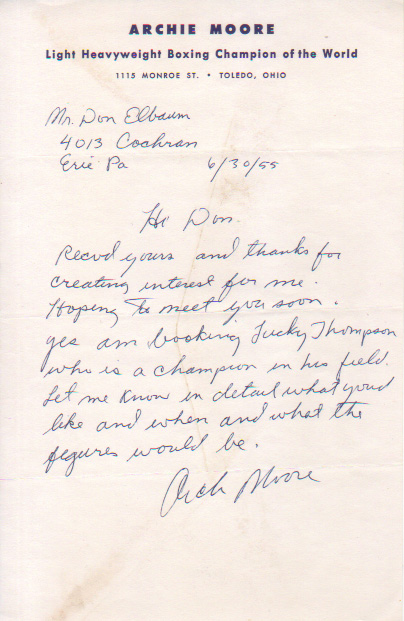 ARCHIE MOORE
Light Heavyweight Boxing Champion of the World
1115 MONROE ST. • TOLEDO, OHIO
Mr. Don Elbaum
4013 Cochran
Erie Pa 6/30/55
Hi Don.
Recvd yours and thanks for
creating interest for me.
Hoping to meet you soon.
yes am booking Lucky Thompson
who is a champion in his field.
Let me know in detail what youd
like and when and what the
figures would be.
Arch Moore